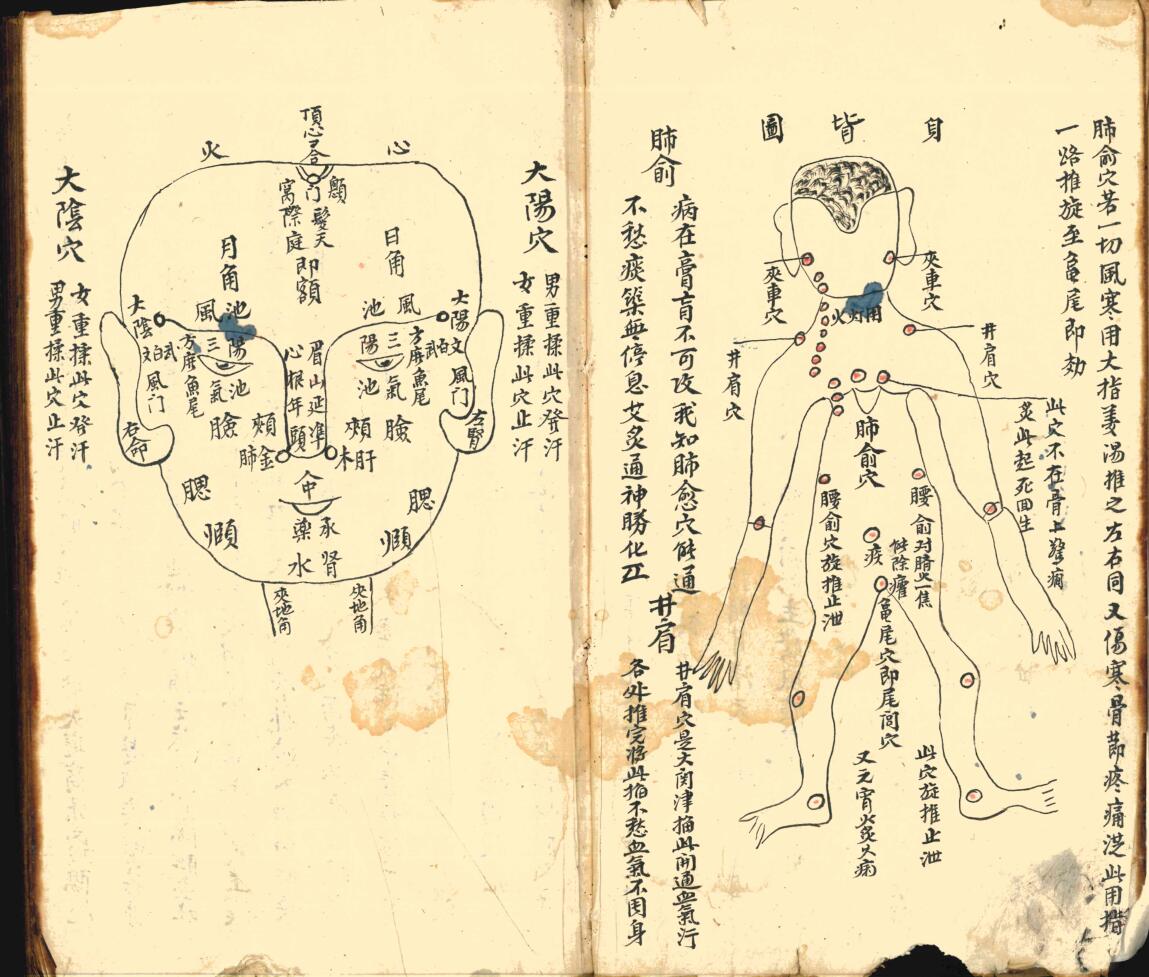 肺俞穴若一切風寒用大指姜湯推之左右同又傷寒骨節疼痛
一路推旋至龜尾即効
身背圖
夾車穴
夾車穴
火灼用
井肩穴
井肩穴
此穴不在骨上驚癇
灸此起死回生
肺俞穴
腰俞对臍
腰俞穴旋推止泄
龜尾穴即尾閭穴
此穴旋推止泄
肺俞
病在膏肓不可攻我知肺愈穴能通
不愁痰築無停息艾灸通神勝化工
井肩
井肩穴是大関津掐此開通血氣行
各外推完將此掐不愁血氣不困身
大陽穴
男重揉此穴發汗
女重揉此穴止汗
心
火
頂心
顖門
髮際
天庭
即額
日角
月角
大陽
風池
風池
大陰
三陽
三陽
氣池
氣池
方廉魚尾
方廉魚尾
風门
風门
右命
左腎
眉心
山根
延年
準頭
臉
臉
頰
頰
肝木
肺金
人中
腮
腮
頤
頤
承漿
腎水
夾地角
夾地角
大陰穴
女重揉此穴發汗
男重揉此穴止汗